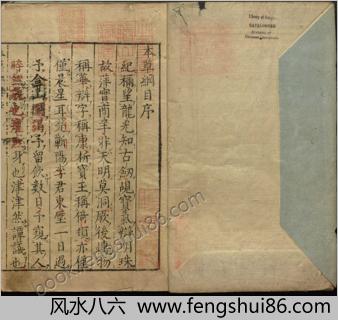 本草綱目序
紀稱望龍光知古劍覘寶氣辨明珠
故萍實商羊非天明莫洞厥後博物
稱華辯字稱康析寶玉稱倚頓亦僅
僅晨星耳楚蘄陽李君東璧一日過
予弇山園謁予留飲數日予窺其人
睟然貌也癯然身也津津然譚議也
Library of Congress
风水八六 www.fengshui86.com